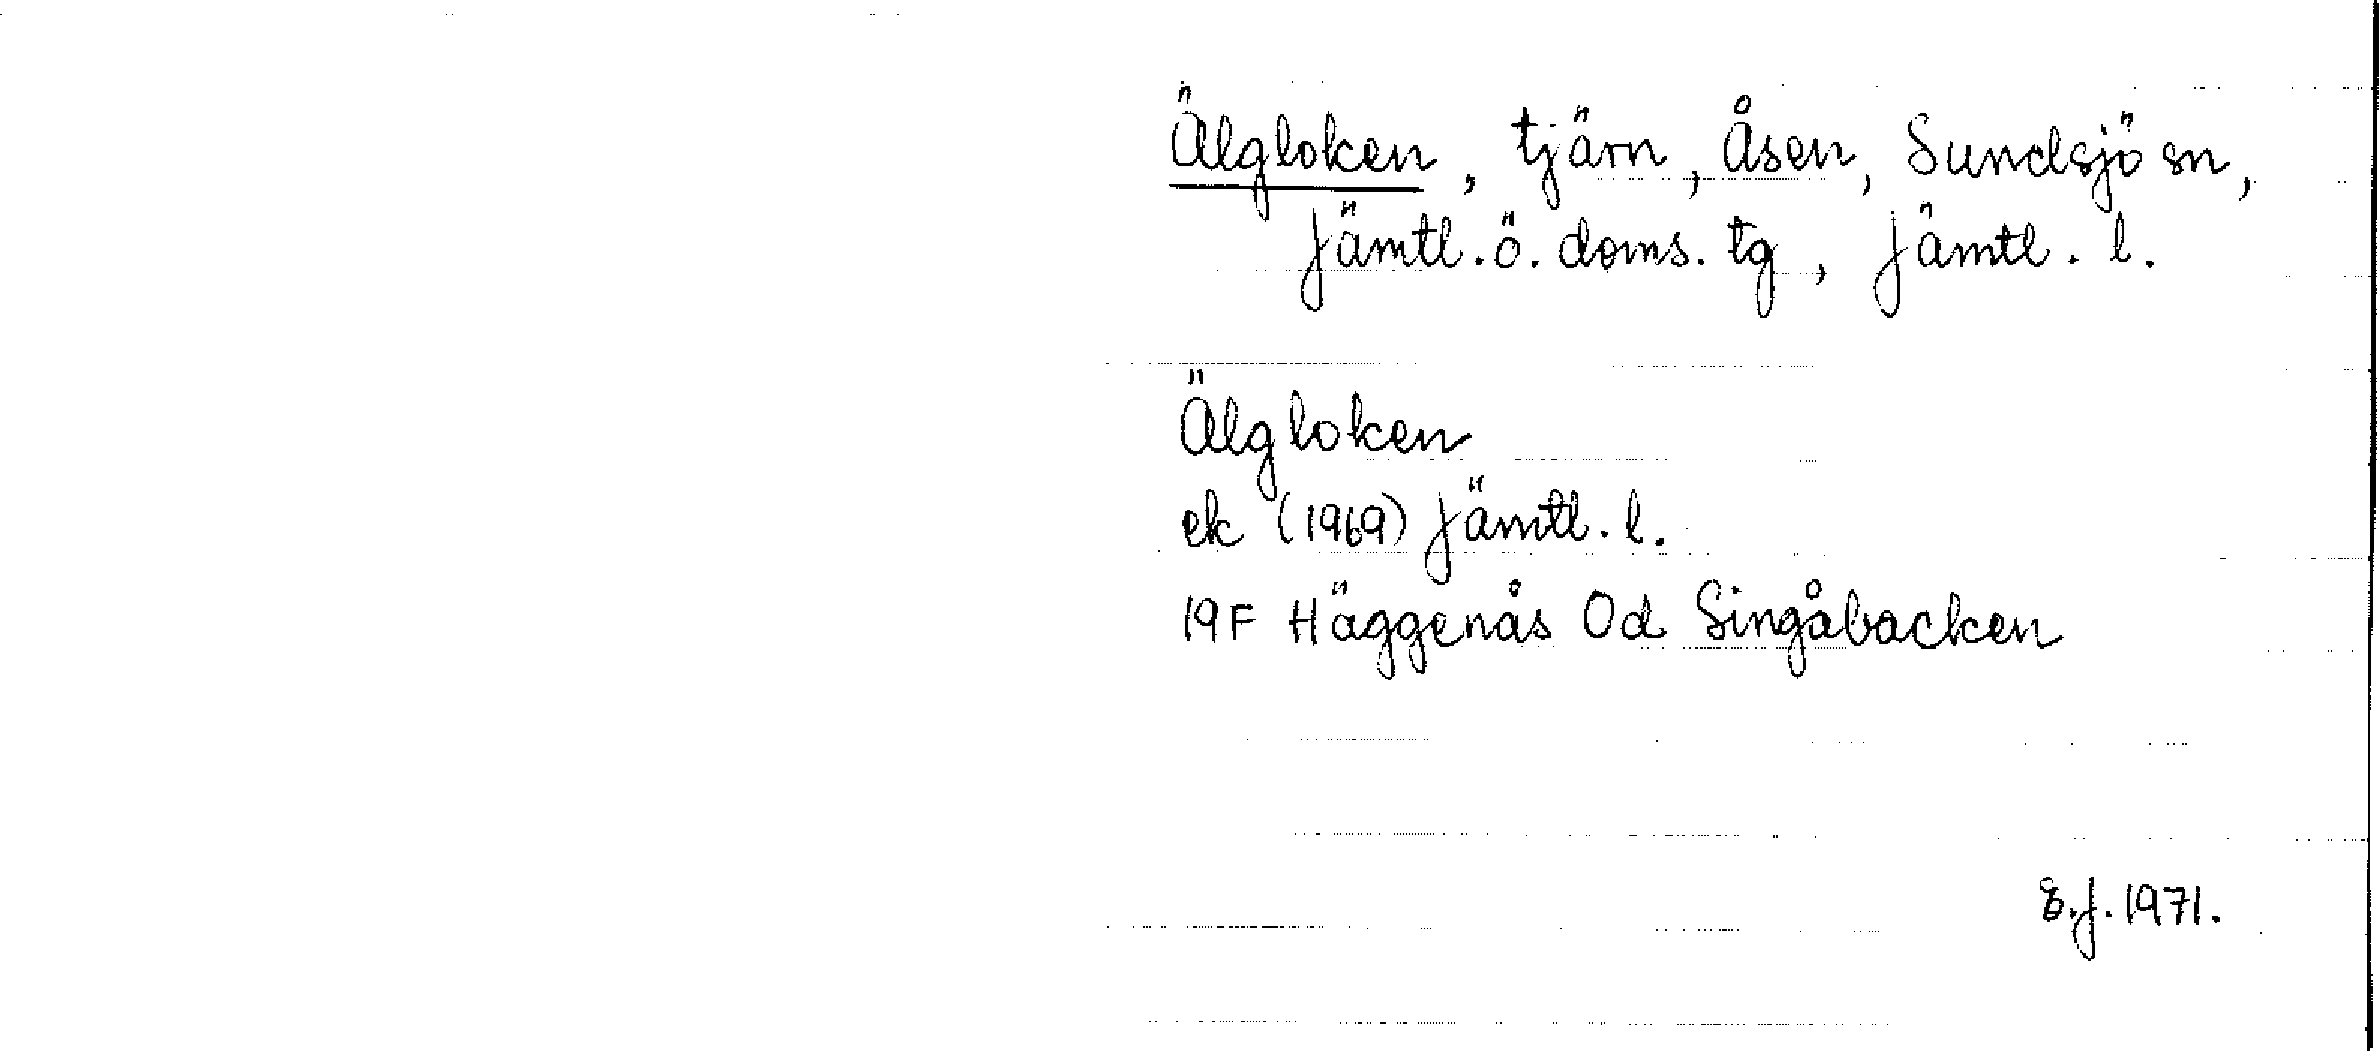 Älgloken, tjärn, Åsen, Sundsjö sn,
Jämtl. ö. doms. tg, Jämtl. l.
Älgloken
ek (1969) Jämtl. l.
19F Häggenås Od Singåbacken
E.J. 1971.